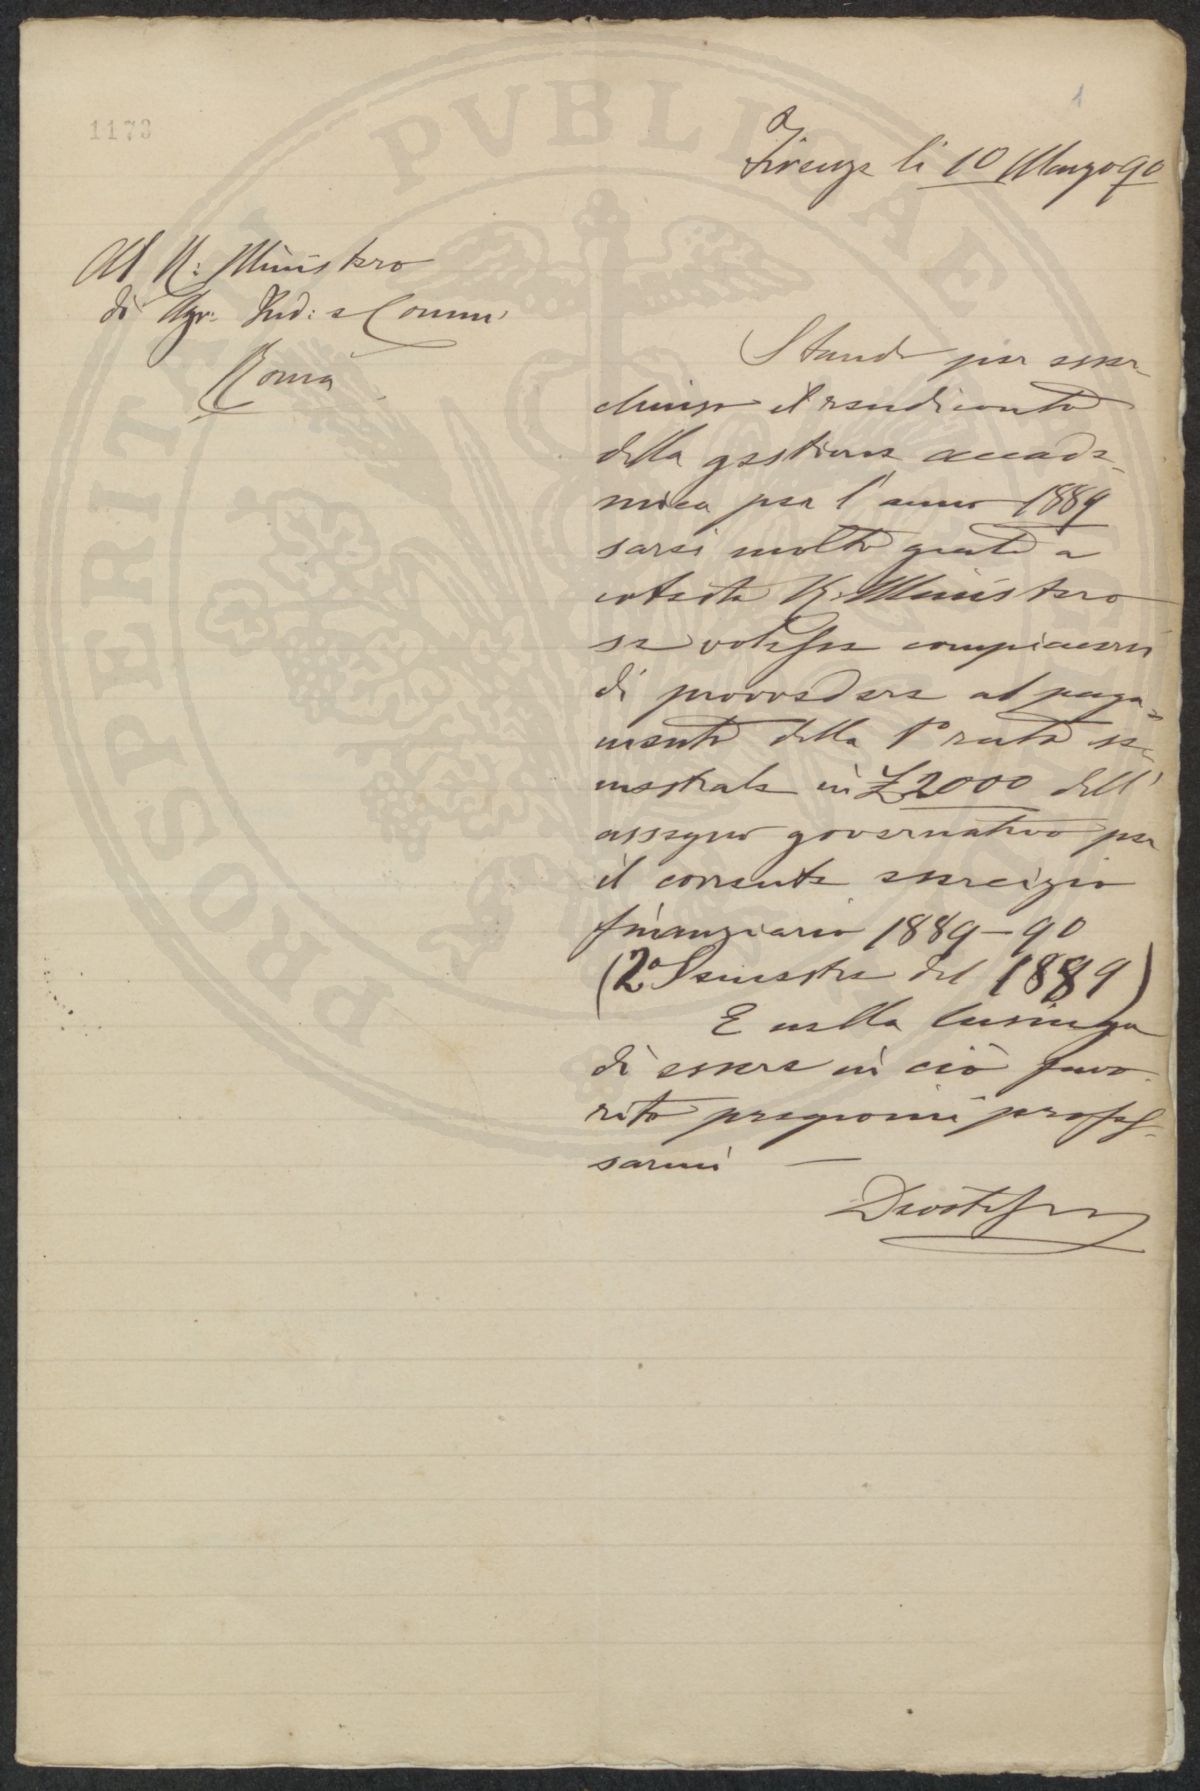 1173
1
Firenze li 10 Marzo 90
Al R: Ministero
di Agr: Ind: e Comm:
Roma
Stando per esser
chiuso il rendiconto
della gestione accade-
mica per l'anno 1889
sarei molto grato a
cotesto R. Ministero
se volesse compiacersi
di provvedere al paga-
mento della 1ª rata se
mestrale in £ 2000 dell'
assegno governativo per
il corrente esercizio
finanziario 1889-90
(2º Semestre del 1889)
E nella lusinga
di essere in ciò favo
rito pregiomi profes-
sarmi —
Devotiss
PROSPERITATI PVBLICAE